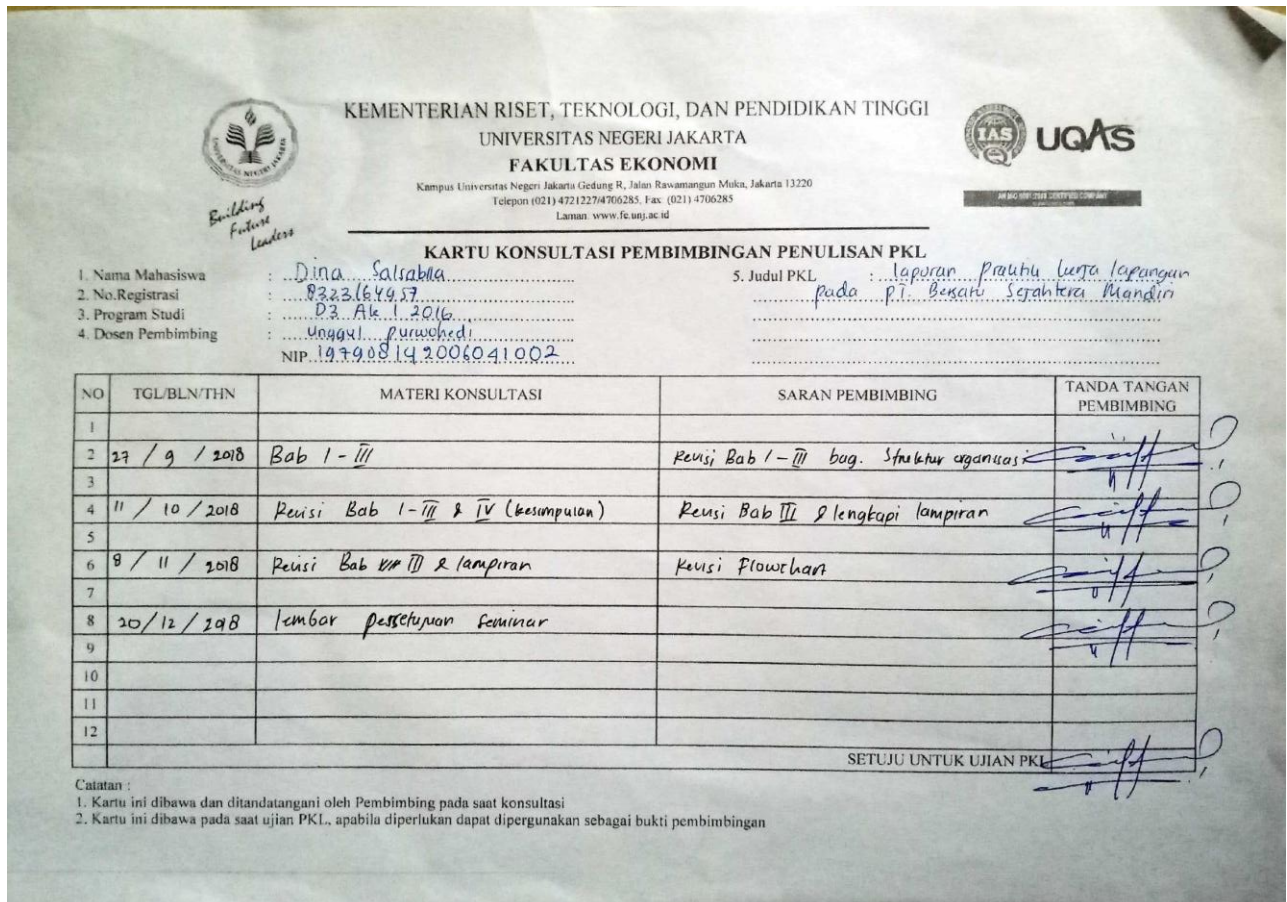 KEMENTERIAN RISET, TEKNOLOGI, DAN PENDIDIKAN TINGGI
UNIVERSITAS NEGERI JAKARTA
FAKULTAS EKONOMI
Kampus Universitas Negeri Jakarta Gedung R, Jalan Rawamangun Muka, Jakarta 13220
Telepon (021) 4721227/4706285, Fax: (021) 4706285
Laman: www.fe.unj.ac.id
Building
Future
Leaders
IAS
UQAS
KARTU KONSULTASI PEMBIMBINGAN PENULISAN PKL
1. Nama Mahasiswa : Dina Salsabila
2. No.Registrasi : 8323164457
3. Program Studi : D3 Ak 1 2016
4. Dosen Pembimbing : Unggul Purwohedi
NIP. 197908142006041002
5. Judul PKL : laporan Praktik kerja lapangan
pada PT. Bersatu Sejahtera Mandiri
NO TGL/BLN/THN MATERI KONSULTASI SARAN PEMBIMBING TANDA TANGAN PEMBIMBING
1
2 27 / 9 / 2018 Bab I - III Revisi Bab I - III bag. Struktur organisasi
3
4 11 / 10 / 2018 Revisi Bab I - III & IV (kesimpulan) Revisi Bab III & lengkapi lampiran
5
6 8 / 11 / 2018 Revisi Bab III & lampiran Revisi Flowchart
7
8 20/12/2018 lembar persetujuan Seminar
9
10
11
12
SETUJU UNTUK UJIAN PKL
Catatan :
1. Kartu ini dibawa dan ditandatangani oleh Pembimbing pada saat konsultasi
2. Kartu ini dibawa pada saat ujian PKL, apabila diperlukan dapat dipergunakan sebagai bukti pembimbingan